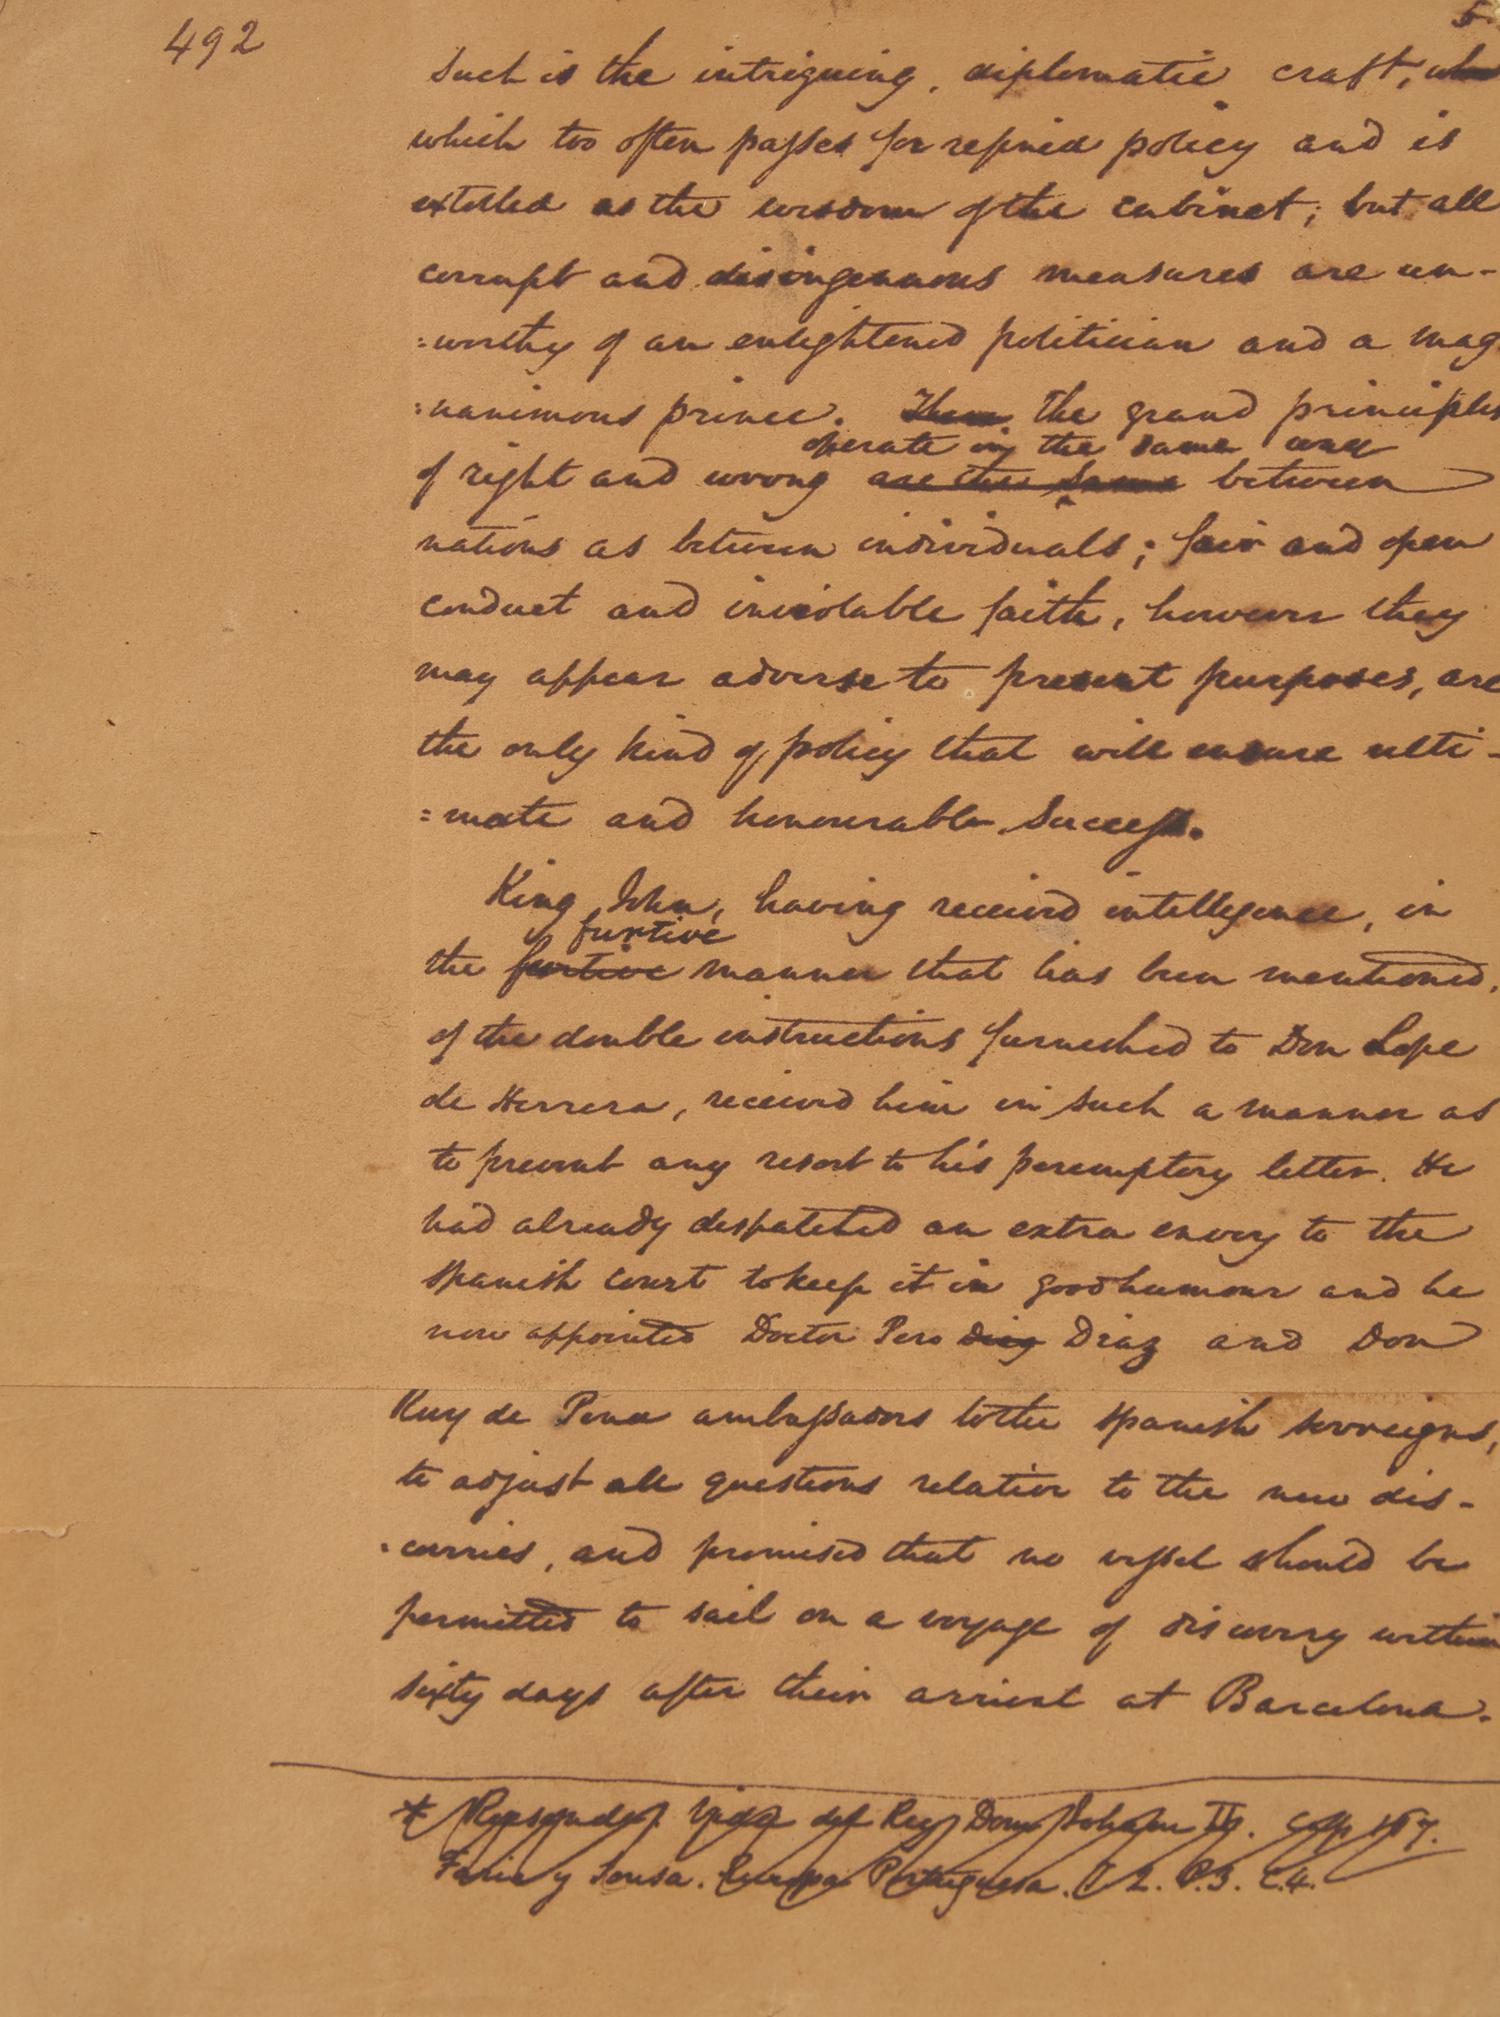 492
5.
Such is the intriguing, diplomatic craft, whi
which too often passes for refined policy and is
extolled as the wisdom of the cabinet; but all
corrupt and disingenuous measures are un-
=worthy of an enlightened politician and a mag
=nanimous prince. The grand principles
operate in the same way
of right and wrong are the same between
nations as between individuals; fair and open
conduct and inviolable faith, however they
may appear adverse to present purposes, are
the only kind of policy that will ensure ulti-
=mate and honourable success.
King John, having received intelligence, in
furtive
the furtive manner that has been mentioned,
of the double instructions furnished to Don Lope
de Herrera, received him in such a manner as
to prevent any resort to his peremptory letter. He
had already despatched an extra envoy to the
Spanish court to keep it in good humour and he
now appointed Doctor Pero Diaz and Don
Ruy de Pena ambassadors to the Spanish sovreigns,
to adjust all questions relative to the new dis-
=coveries, and promised that no vessel should be
permitted to sail on a voyage of discovery within
sixty days after their arrival at Barcelona.
* Resende. Vida del Rey Dom Joham II. Cap 167.
Faria y Sousa. Europa Portuguesa. T 2. P. 3. C. 4.